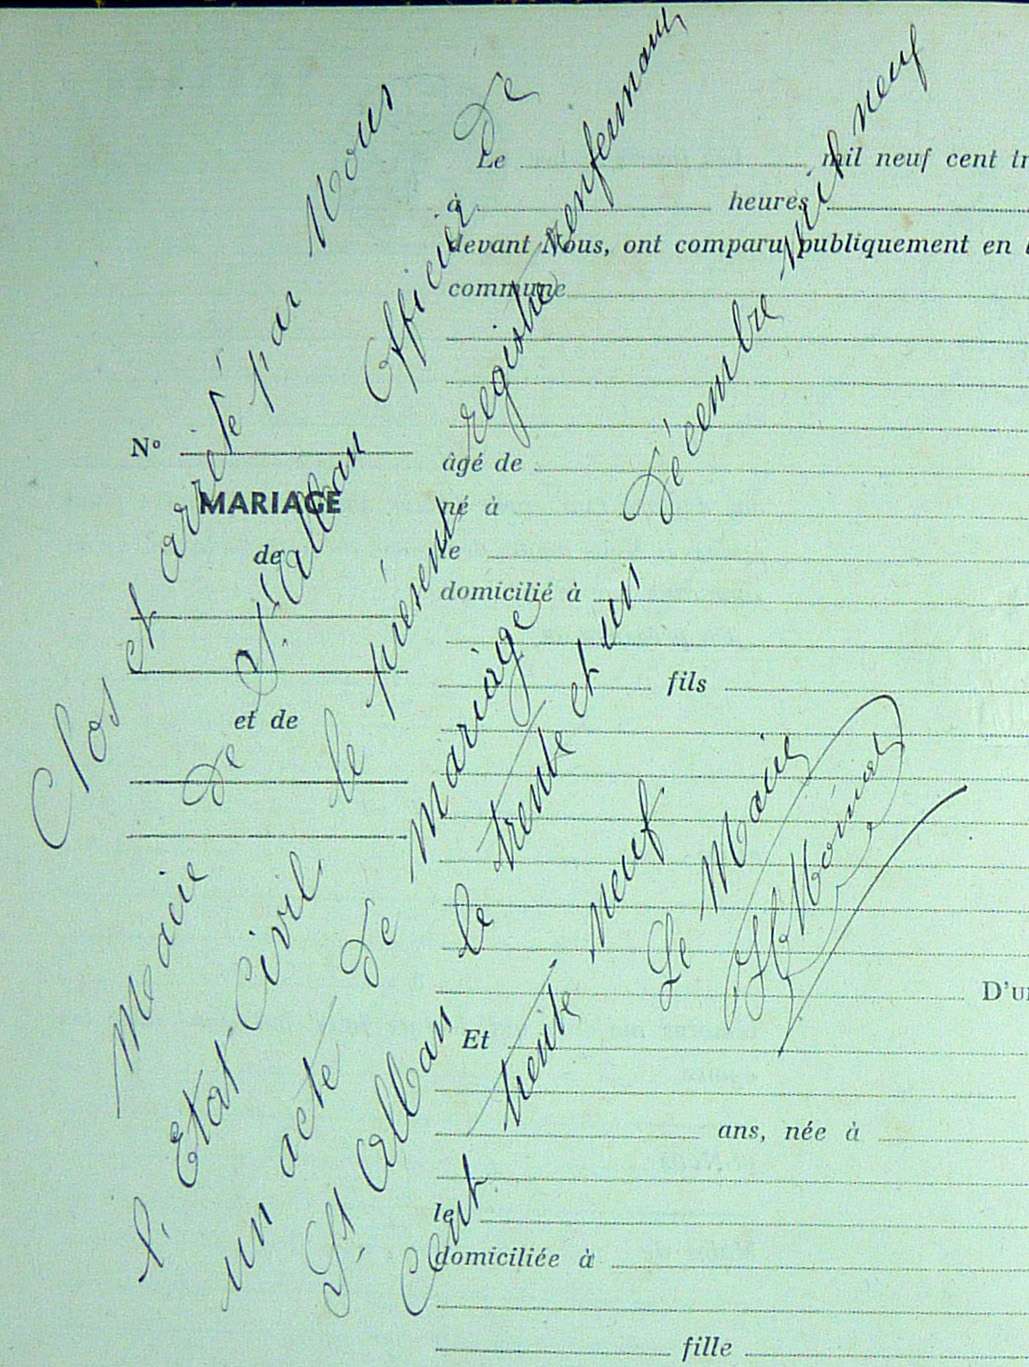 Clos et arrêté par Nous
Maire de St Alban Officier De
l'Etat-Civil, le présent registre renfermant
un acte de mariage
St Alban le trente et un Décembre Mil neuf
Cent trente-neuf
Le Maire
N°
MARIAGE
de
et de
Le mil neuf cent tr
à heures
devant Nous, ont comparu publiquement en l
commune
âgé de
né à
le
domicilié à
fils
D'un
Et
ans, née à
le
domiciliée à
fille